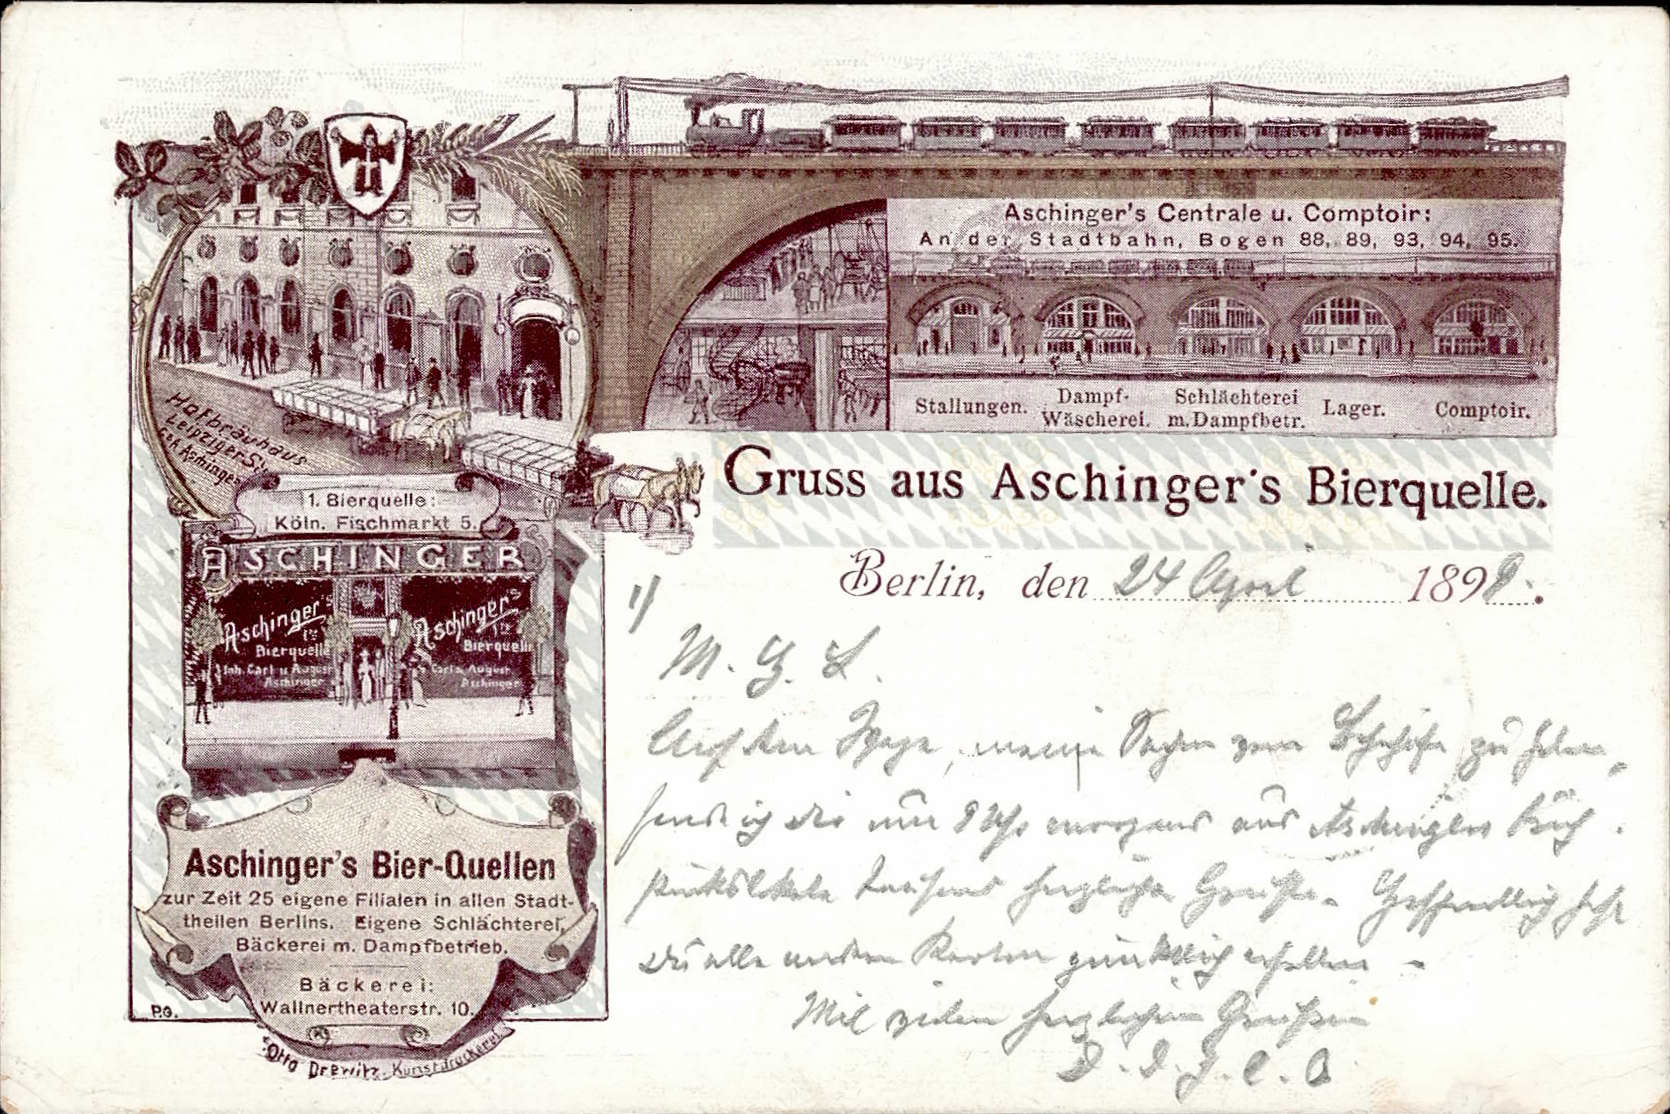 Aschinger's Centrale u. Comptoir:
An der Stadtbahn, Bogen 88, 89, 93, 94, 95.
Stallungen.
Dampf-
Wäscherei.
Schlächterei
m. Dampfbetr.
Lager.
Comptoir.
Hofbräuhaus
Leipziger S
Aschinger
1. Bierquelle:
Köln. Fischmarkt 5.
Gruss aus Aschinger's Bierquelle.
Berlin, den 24 April 1898.
ASCHINGER
Aschinger's
Bierquelle
Inh. Carl u. August
Aschinger
Aschinger's
Bierquelle
Carl u. August
Aschinger
1)
M. G. L.
Auf dem Wege, meine Sachen zum Schiffe zu
send ich dir um 8 Uhr morgens aus Aschingers Früh
stückslokale tausend herzliche Grüße. Hoffentlich hast
Du alle meine Karten pünktlich erhalten.
Mit vielen herzlichen Grüßen
Aschinger's Bier-Quellen
zur Zeit 25 eigene Filialen in allen Stadt-
theilen Berlins. Eigene Schlächterei,
Bäckerei m. Dampfbetrieb.
Bäckerei:
Wallnertheaterstr. 10.
P.G.
Otto Drewitz, Kunstdruckerei